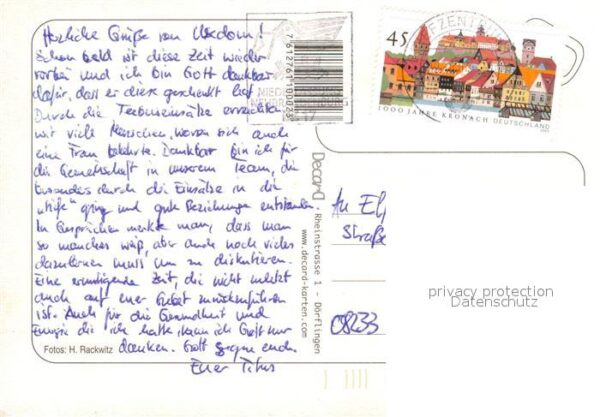 Herzliche Grüße von Usedom!
Schon bald ist diese Zeit wieder
vorbei und ich bin Gott dankbar
dafür, dass er diese geschenkt hat.
Durch die Teeniseinsätze erreichten
wir viele Menschen, wovon sich auch
eine Frau bekehrte. Dankbar bin ich für
die Gemeinschaft in unserem Team, die
besonders durch die Einsätze in die
"Tiefe" ging und gute Beziehungen entstanden.
In Gesprächen merkte man, dass man
so manches weiß, aber auch noch vieles
dazulernen muss um zu diskutieren.
Eine ermutigende Zeit, die nicht zuletzt
auch auf euer Gebet zurückzuführen
ist. Auch für die Gesundheit und
Energie die ich hatte, kann ich Gott nur
danken. Gott segne euch.
Euer Titus
Fotos: H. Rackwitz
7612761100023
Decard Rheinstrasse 1 - Dörflingen
www.decard-karten.com
45
1000 JAHRE KRONACH DEUTSCHLAND
An
Straße
08233
privacy protection
Datenschutz